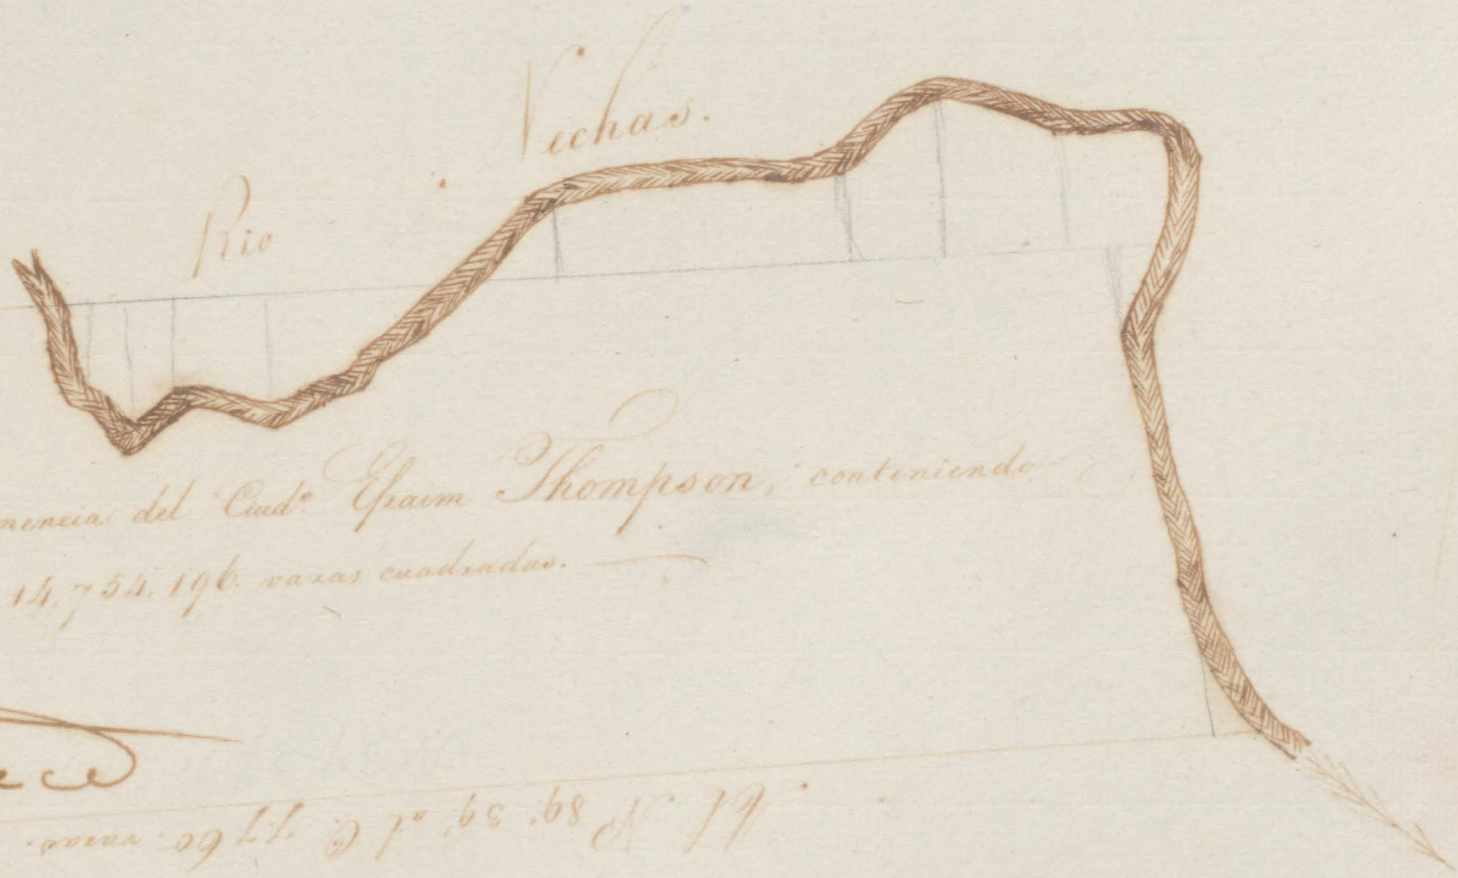 Rio Nechas.
mencia del Ciud.º Efraim Thompson, conteniendo
14,754,196. varas cuadradas.
ece
Al N. 89.º 39.' al E. 7760. varas.